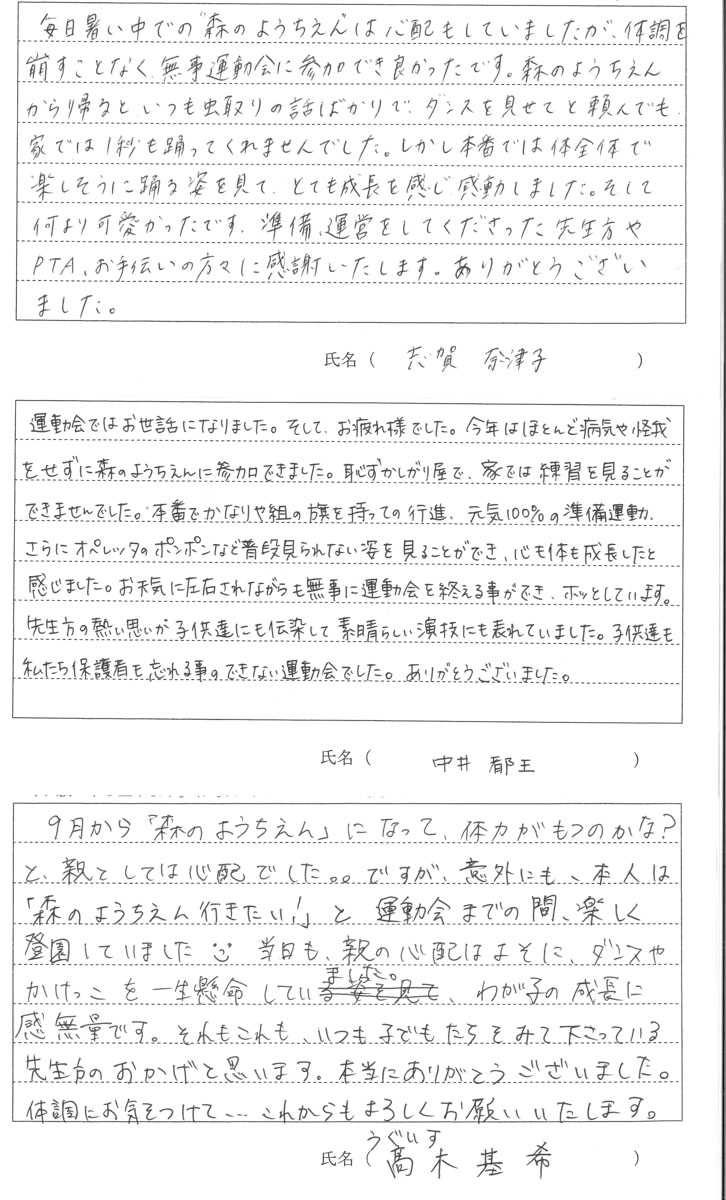 毎日暑い中での"森のようちえん"は心配もしていましたが、体調を
崩すことなく、無事運動会に参加でき良かったです。森のようちえん
から帰るといつも虫取りの話ばかりで、ダンスを見せてと頼んでも、
家では1秒も踊ってくれませんでした。しかし本番では体全体で
楽しそうに踊る姿を見て、とても成長を感じ感動しました。そして
何より可愛かったです。準備、運営をしてくださった先生方や
PTA、お手伝いの方々に感謝いたします。ありがとうござい
ました。
氏名（ 志賀 奈津子 ）
運動会ではお世話になりました。そして、お疲れ様でした。今年はほとんど病気や怪我
をせずに森のようちえんに参加できました。恥ずかしがり屋で、家では練習を見ることが
できませんでした。本番でかなりや組の旗を持っての行進、元気100%の準備運動、
さらにオペレッタのポンポンなど普段見られない姿を見ることができ、心も体も成長したと
感じました。お天気に左右されながらも無事に運動会を終える事ができ、ホッとしています。
先生方の熱い思いが子供達にも伝染して素晴らしい演技にも表れていました。子供達も
私たち保護者も忘れる事のできない運動会でした。ありがとうございました。
氏名（ 中井 都 ）
9月から「森のようちえん」になって、体力がもつのかな?
と、親としては心配でした。。ですが、意外にも、本人は
「森のようちえん行きたい!」と 運動会までの間、楽しく
登園していました 当日も、親の心配はよそに、ダンスや
ました。
かけっこを一生懸命してい~~る姿を見て~~、わが子の成長に
感無量です。それもこれも、いつも子どもたちをみて下さっている
先生方のおかげと思います。本当にありがとうございました。
体調にお気をつけて…これからもよろしくお願いいたします。
うぐいす
氏名（ 髙木 基希 ）